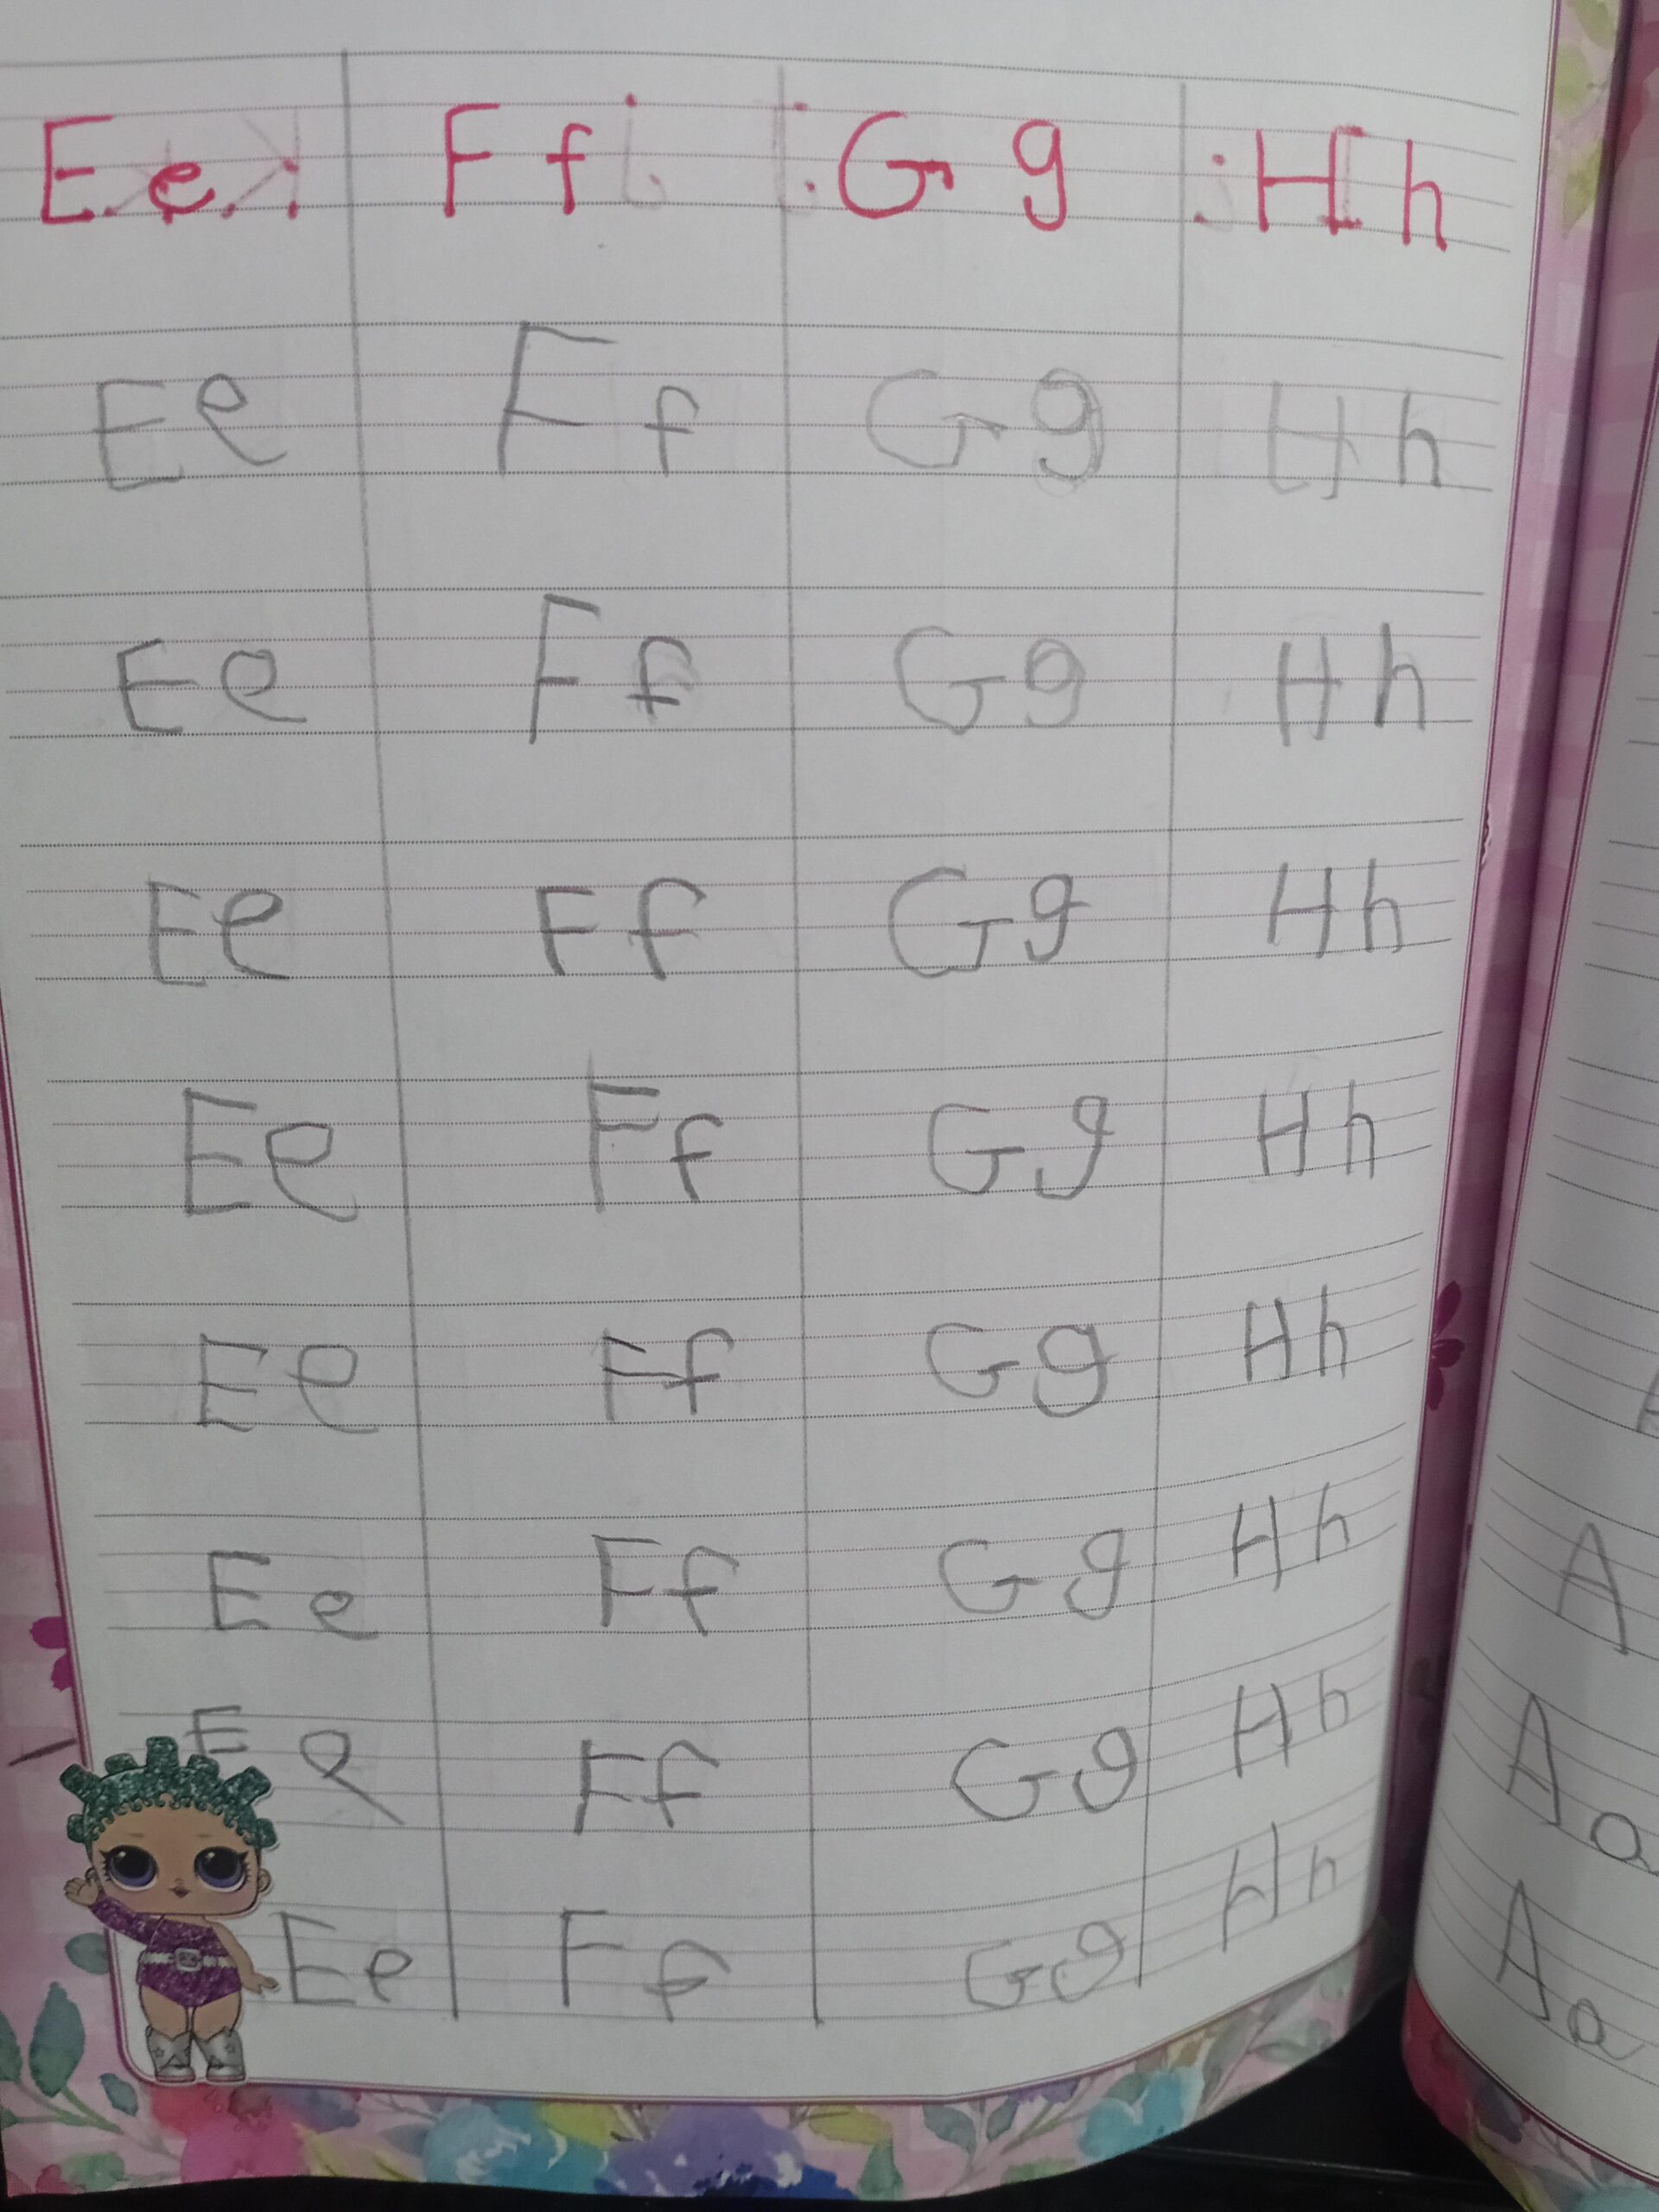 Ee Ff Gg Hh
Ee Ff Gg Hh
Ee Ff Gg Hh
Ee Ff Gg Hh
Ee Ff Gg Hh
Ee Ff Gg Hh
Ee Ff Gg Hh
Ee Ff Gg Hh
Ee Ff Gg Hh
A
Aa
Aa